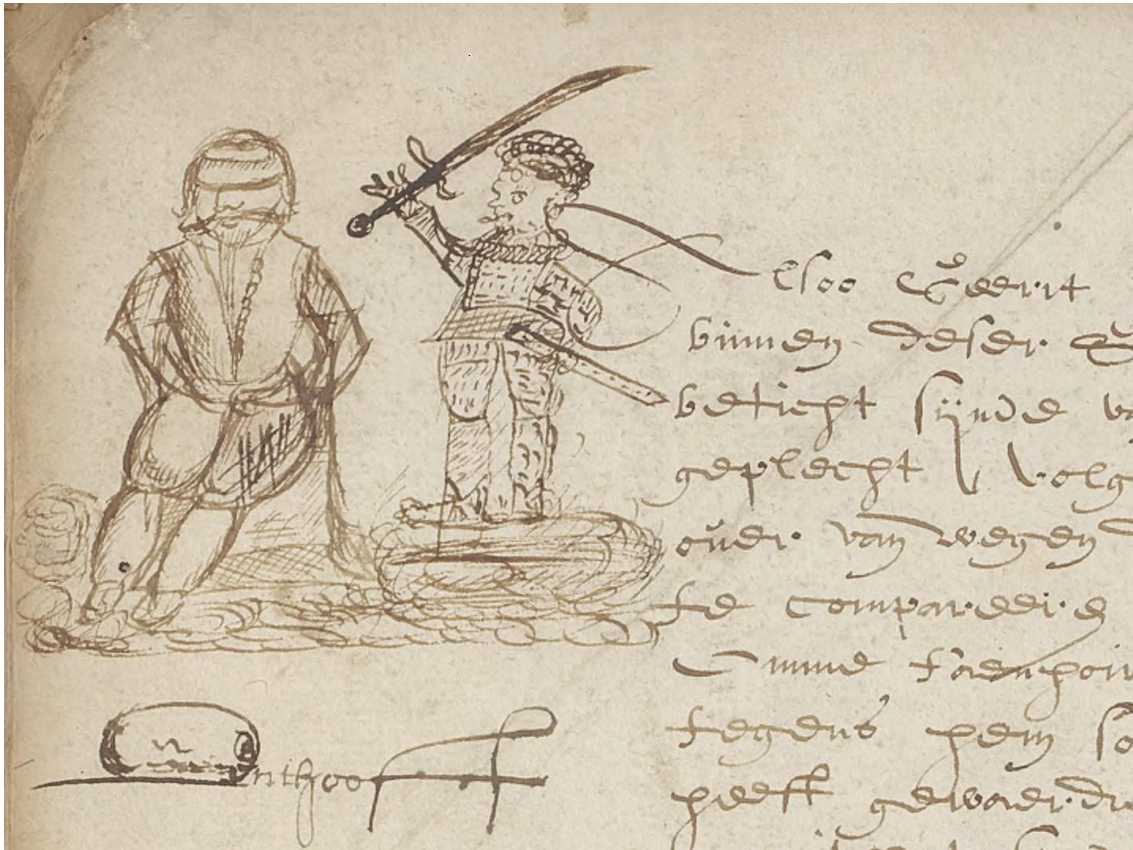 Alsoo Geerit
binnen deser
beticht sijnde
geplecht volg
over van wegen
te compareere
Omme t'aenhoir
tegens hem so
heeft gewaerdi
onthooft